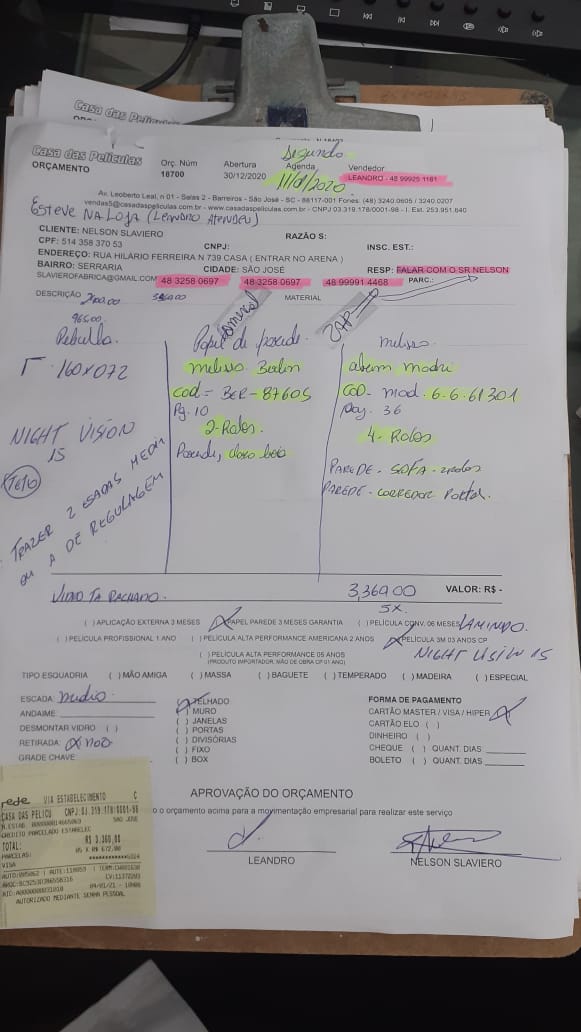 Casa das Películas
Casa das Películas
ORÇAMENTO
Orç. Núm
18700
Abertura
30/12/2020
Segunda
Agenda
11/01/2020
Vendedor
LEANDRO - 48 99925 1161
Av. Leoberto Leal, n 01 - Salas 2 - Barreiros - São José - SC - 88117-001 Fones: (48) 3240.0605 / 3240.0207
vendas5@casadaspeliculas.com.br - www.casadaspeliculas.com.br - CNPJ 03.319.178/0001-98 - I. Est. 253.951.640
ESTEVE NA LOJA (LEANDRO ATENDEU)
CLIENTE: NELSON SLAVIERO RAZÃO S:
CPF: 514 358 370 53 CNPJ: INSC. EST.:
ENDEREÇO: RUA HILARIO FERREIRA N 739 CASA ( ENTRAR NO ARENA )
BAIRRO: SERRARIA CIDADE: SÃO JOSÉ RESP: FALAR COM O SR NELSON
SLAVIEROFABRICA@GMAIL.COM 48 3258 0697 48 3258 0697 48 99991 4468 PARC.:
DESCRIÇÃO MATERIAL
965,00
160x072
NIGHT VISION
15
TETO
TRAZER 2 ESCADAS MEDIA
OU A DE REGULAGEM
Papel de parede
melisso Berlin
cod = BER - 87605
Pg. 10
2-Rolos.
melisso
COD - mod. 6.6.61301
pag. 36
4- Rolos
PAREDE - SOFA -
PAREDE - CORREDOR PORTAL.
VIDRO TA RACHADO.
3,360.00 VALOR: R$ -
5X.
( ) APLICAÇÃO EXTERNA 3 MESES (X) PAPEL PAREDE 3 MESES GARANTIA ( ) PELÍCULA CONV. 06 MESES LAMINADO.
( ) PELÍCULA PROFISSIONAL 1 ANO ( ) PELÍCULA ALTA PERFORMANCE AMERICANA 2 ANOS (X) PELÍCULA 3M 03 ANOS CP
( ) PELÍCULA ALTA PERFORMANCE 05 ANOS
(PRODUTO IMPORTADOR, MÃO DE OBRA CP 01 ANO)
NIGHT VISION 15
TIPO ESQUADRIA ( ) MÃO AMIGA ( ) MASSA ( ) BAGUETE ( ) TEMPERADO ( ) MADEIRA ( ) ESPECIAL
ESCADA: medio
ANDAIME:
DESMONTAR VIDRO ( )
RETIRADA: (X) NÃO
GRADE CHAVE
(X) TELHADO
( ) MURO
( ) JANELAS
( ) PORTAS
( ) DIVISÓRIAS
( ) FIXO
( ) BOX
FORMA DE PAGAMENTO
CARTÃO MASTER / VISA / HIPER (X)
CARTÃO ELO ( )
DINHEIRO ( )
CHEQUE ( ) QUANT. DIAS
BOLETO ( ) QUANT. DIAS
APROVAÇÃO DO ORÇAMENTO
o o orçamento acima para a movimentação empresarial para realizar este serviço
LEANDRO
NELSON SLAVIERO
rede VIA ESTABELECIMENTO C
CASA DAS PELICU CNPJ:03.319.178/0001-98
SAO JOSE
CREDITO PARCELADO ESTABELEC
TOTAL: R$ 3.360,00
PARCELAS: 05 X R$ 672,00
VISA
AUTORIZADO MEDIANTE SENHA PESSOAL